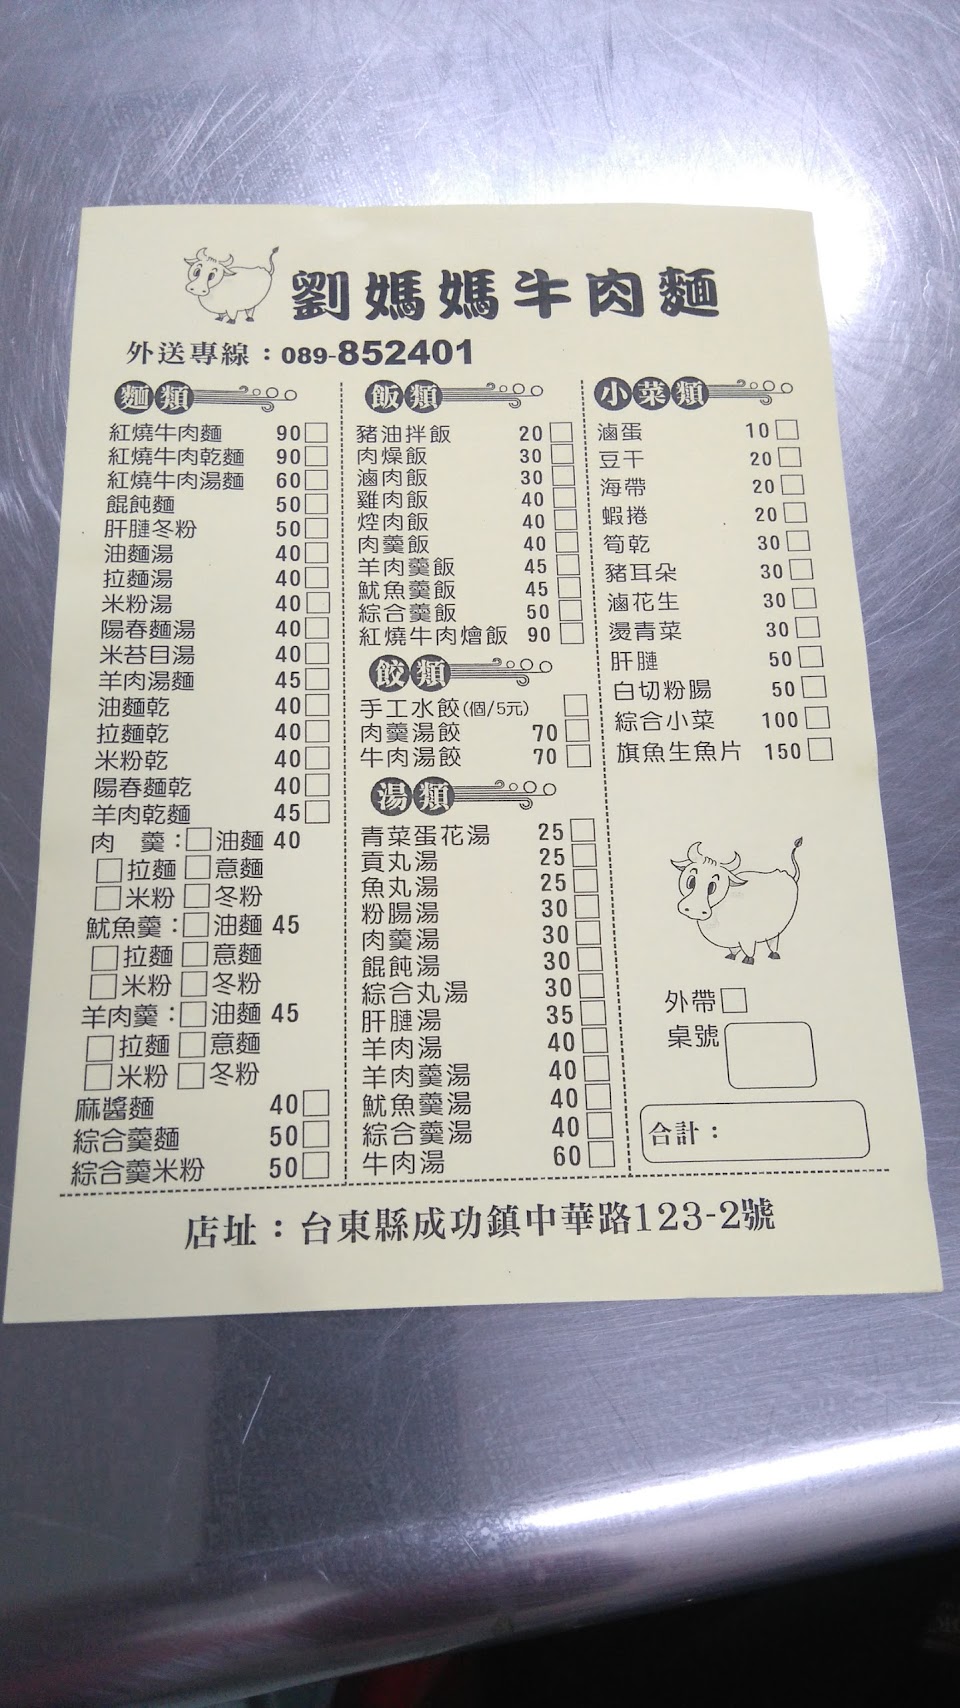 劉媽媽牛肉麵
外送專線：089-852401
麵類
紅燒牛肉麵 90□
紅燒牛肉乾麵 90□
紅燒牛肉湯麵 60□
餛飩麵 50□
肝腱冬粉 50□
油麵湯 40□
拉麵湯 40□
米粉湯 40□
陽春麵湯 40□
米苔目湯 40□
羊肉湯麵 45□
油麵乾 40□
拉麵乾 40□
米粉乾 40□
陽春麵乾 40□
羊肉乾麵 45□
肉 羹：□油麵 40
□拉麵□意麵
□米粉□冬粉
魷魚羹：□油麵 45
□拉麵□意麵
□米粉□冬粉
羊肉羹：□油麵 45
□拉麵□意麵
□米粉□冬粉
麻醬麵 40□
綜合羹麵 50□
綜合羹米粉 50□
飯類
豬油拌飯 20□
肉燥飯 30□
滷肉飯 30□
雞肉飯 40□
焢肉飯 40□
肉羹飯 40□
羊肉羹飯 45□
魷魚羹飯 45□
綜合羹飯 50□
紅燒牛肉燴飯 90□
餃類
手工水餃(個/5元) □
肉羹湯餃 70□
牛肉湯餃 70□
湯類
青菜蛋花湯 25□
貢丸湯 25□
魚丸湯 25□
粉腸湯 30□
肉羹湯 30□
餛飩湯 30□
綜合丸湯 30□
肝腱湯 35□
羊肉湯 40□
羊肉羹湯 40□
魷魚羹湯 40□
綜合羹湯 40□
牛肉湯 60□
小菜類
滷蛋 10□
豆干 20□
海帶 20□
蝦捲 20□
筍乾 30□
豬耳朵 30□
滷花生 30□
燙青菜 30□
肝腱 50□
白切粉腸 50□
綜合小菜 100□
旗魚生魚片 150□
外帶□
桌號
合計：
店址：台東縣成功鎮中華路123-2號